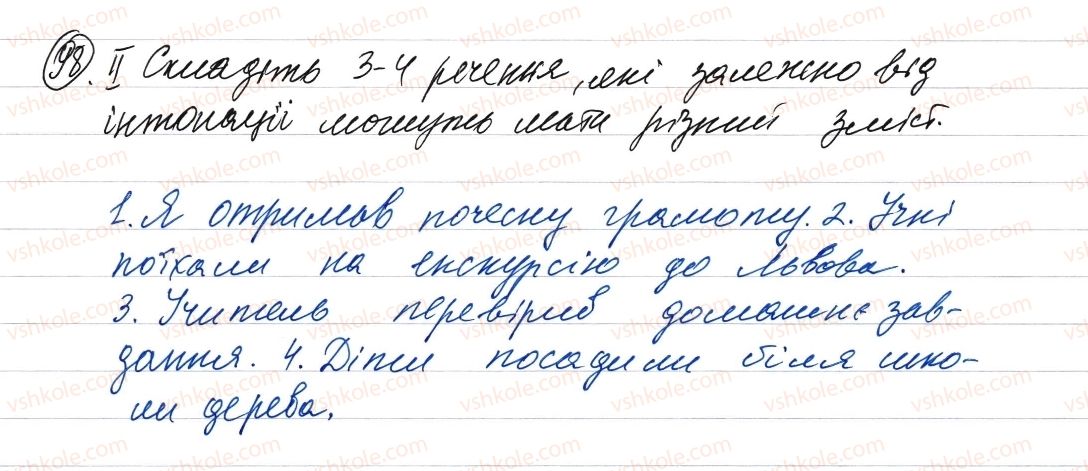 98. II Складіть 3-4 речення, які залежно від
інтонації можуть мати різний зміст.
1. Я отримав почесну грамоту. 2. Учні
поїхали на екскурсію до Львова.
3. Учитель перевірив домашнє зав-
дання. 4. Діти посадили біля шко-
ли дерева.